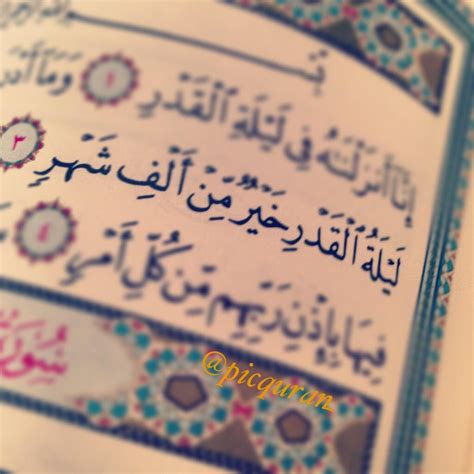 إِنَّا أَنزَلْنَٰهُ فِي لَيْلَةِ ٱلْقَدْرِ ١ وَمَا أَدْر
لَيْلَةُ ٱلْقَدْرِ خَيْرٌ مِّنْ أَلْفِ شَهْرٍ ٣
فِيهَا بِإِذْنِ رَبِّهِم مِّن كُلِّ أَمْرٍ ٤
سُورَة
@picquran